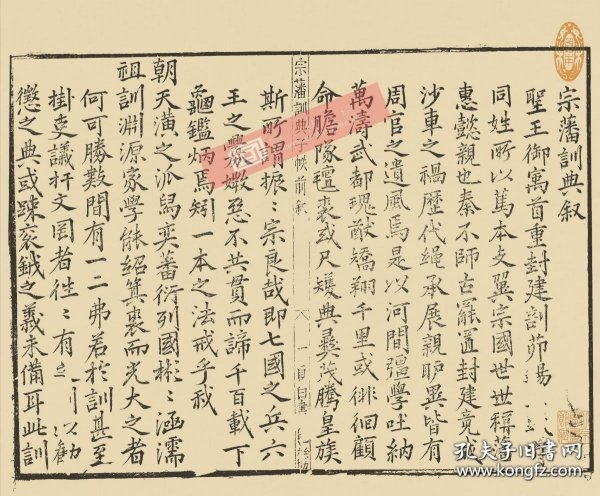 宗藩訓典叙
聖王御寓首重封建剖茆揚
同姓所以篤本支翼宗國世世稱
惠懿親也秦不師古罷置封建竟
沙車之禍歷代繩承展親睦異皆有
周官之遺風焉是以河間彊學吐納
萬濤武都瑰猷矯翔千里或徘徊顧
命膽隊氊裘或尺矱典彝茂騰皇族
宗藩訓典 前叙
斯所謂振：宗良哉即七國之兵六
王之釁媺惡不共貫而諦千百載下
龜鑑炳焉矧一本之法戒乎哉
朝天潢之派舄奕蕃衍列國彬：涵濡
祖訓淵源家學能紹箕裘而光大之者
何可勝數間有一二弗若於訓甚至
掛吏議扞文罔者徃：有
懲之典或踈袞鉞之義未備耳此訓
孔夫子旧书网
www.kongfz.com